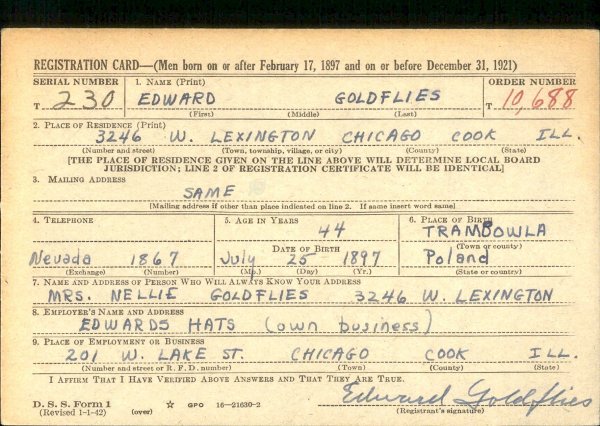 REGISTRATION CARD—(Men born on or after February 17, 1897 and on or before December 31, 1921)
SERIAL NUMBER 1. NAME (Print) ORDER NUMBER
T 230 EDWARD GOLDFLIES T 10,688
(First) (Middle) (Last)
2. PLACE OF RESIDENCE (Print)
3246 W. LEXINGTON CHICAGO COOK ILL.
(Number and street) (Town, township, village, or city) (County) (State)
[THE PLACE OF RESIDENCE GIVEN ON THE LINE ABOVE WILL DETERMINE LOCAL BOARD
JURISDICTION; LINE 2 OF REGISTRATION CERTIFICATE WILL BE IDENTICAL]
3. MAILING ADDRESS
SAME
[Mailing address if other than place indicated on line 2. If same insert word same]
4. TELEPHONE 5. AGE IN YEARS 6. PLACE OF BIRTH
44 TRAMBOWLA
DATE OF BIRTH (Town or county)
Nevada 1867 July 25 1897 Poland
(Exchange) (Number) (Mo.) (Day) (Yr.) (State or country)
7. NAME AND ADDRESS OF PERSON WHO WILL ALWAYS KNOW YOUR ADDRESS
MRS. NELLIE GOLDFLIES 3246 W. LEXINGTON
8. EMPLOYER'S NAME AND ADDRESS
EDWARDS HATS (own business)
9. PLACE OF EMPLOYMENT OR BUSINESS
201 W. LAKE ST. CHICAGO COOK ILL.
(Number and street or R. F. D. number) (Town) (County) (State)
I AFFIRM THAT I HAVE VERIFIED ABOVE ANSWERS AND THAT THEY ARE TRUE.
Edward Goldflies
D. S. S. Form 1
(Revised 1-1-42) (over) ☆ GPO 16—21630-2 (Registrant's signature)